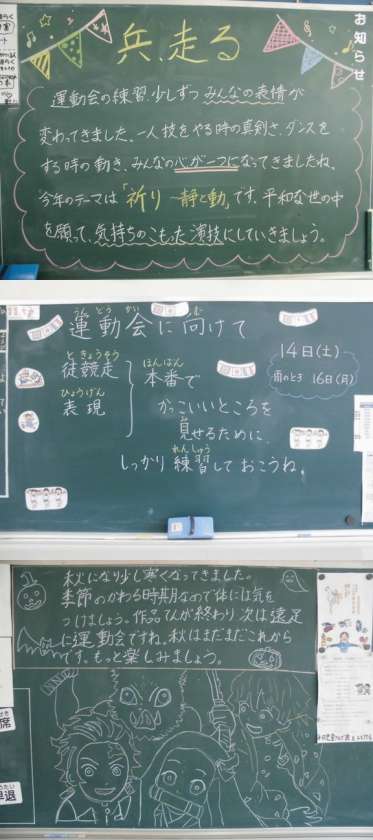 お知らせ
兵、走る
運動会の練習、少しずつみんなの表情が
変わってきました。一人技をやる時の真剣さ、ダンスを
する時の動き、みんなの心が一つになってきましたね。
今年のテーマは「祈り－静と動」です。平和な世の中
を願って、気持ちのこもった演技にしていきましょう。
うんどうかい む
運動会に向けて
14日(土)
雨のとき 16日(月)
ときょうそう
徒競走
ひょうげん
表現
ほんばん
本番で
かっこいいところを
み
見せるために
れんしゅう
しっかり練習しておこうね。
秋になり少し寒くなってきました。
季節のかわる時期なので体には気を
つけましょう。作品てんが終わり次は遠足
に運動会ですね。秋はまだまだこれから
です。もっと楽しみましょう。
席
早退